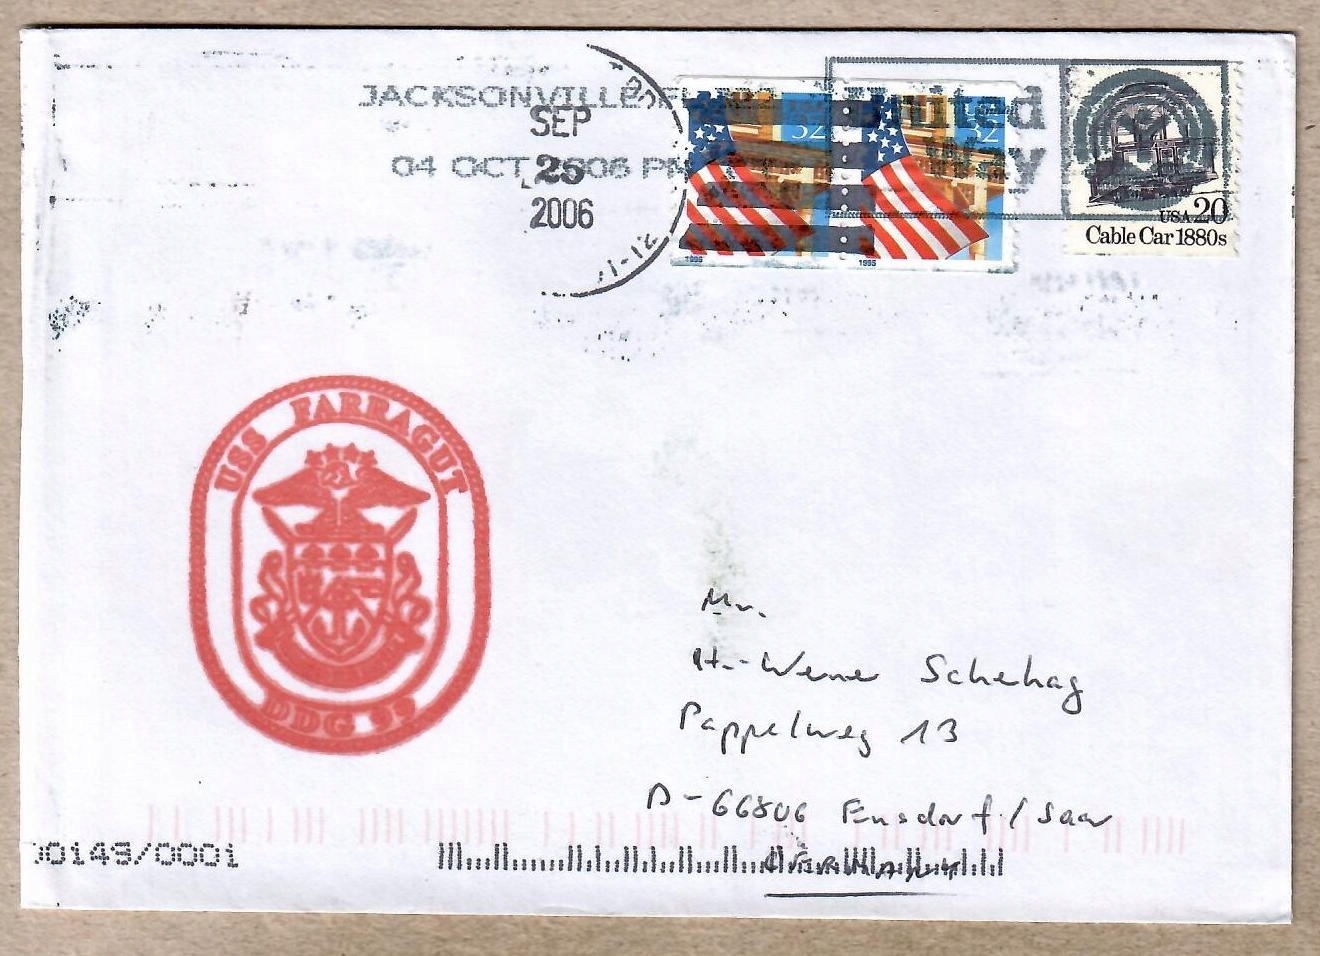 JACKSONVILLE
SEP
25
04 OCT 2006 PM
2006
United
Way
32
32
1995
1995
USA 20
Cable Car 1880s
USS FARRAGUT
DDG 99
Mr.
H.-Werner Schehag
Pappelweg 13
D-66806 Ensdorf/Saar
GERMANY
00149/0001